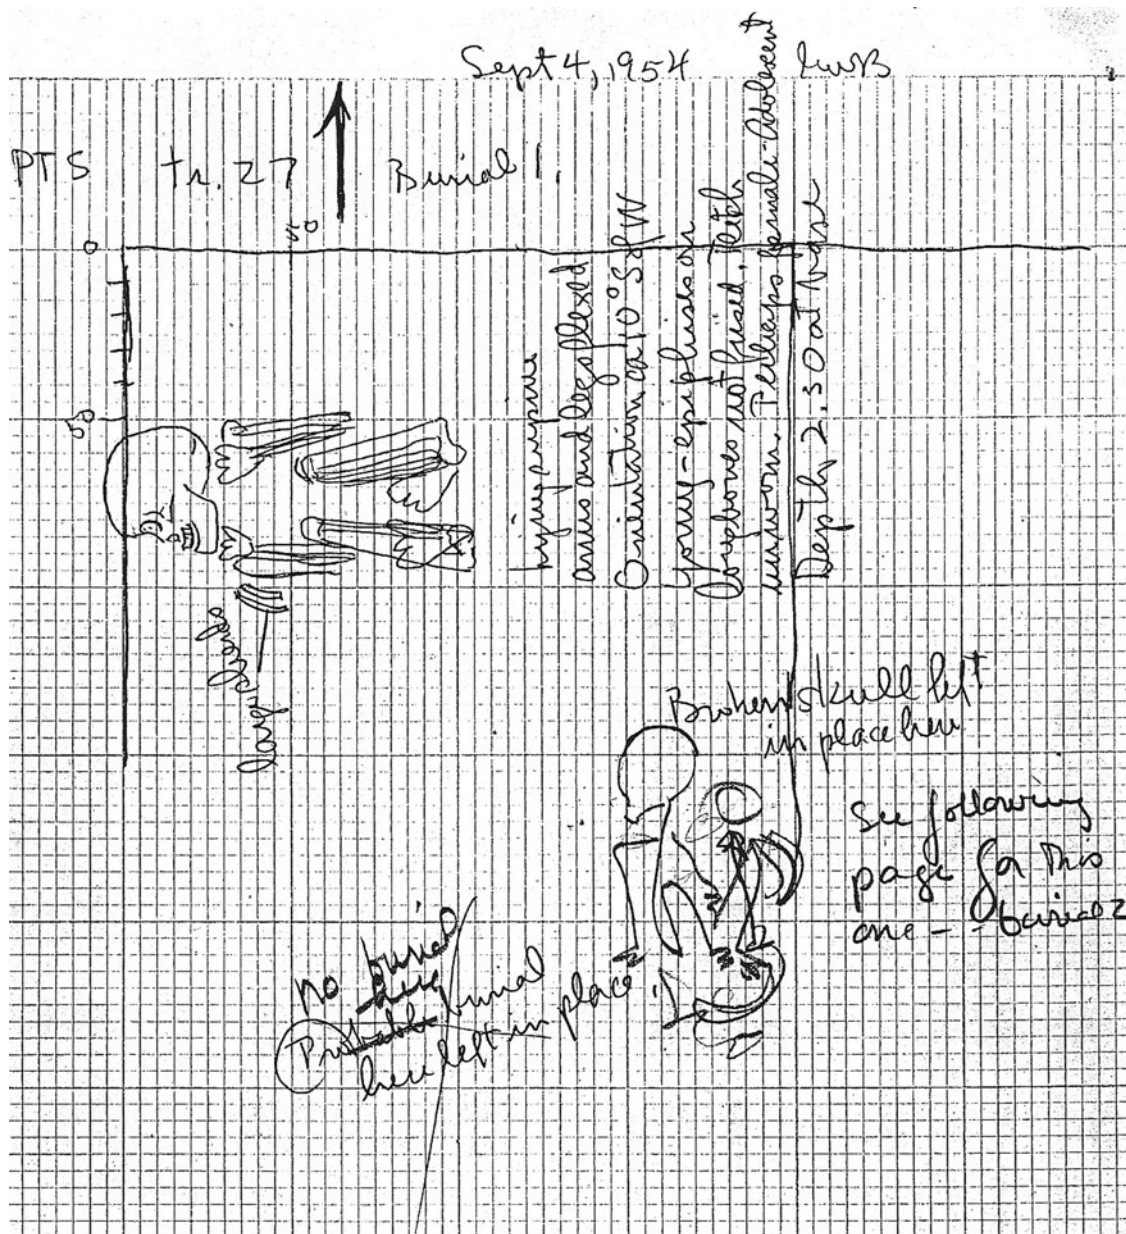 Sept 4, 1954
PTS tr. 27 Burial 1.
0
50
50
Lying supine
arms and legs flexed
Orientation ca 10° S of W
Young - epiphuses on
longbones not fused. Teeth
unworn. Perhaps female - Adolescent
Depth 2.30 at Nose
Broken skull left
in place here
See following
page for this
one -- burial 2
no burial
here
Probable burial
here left in place.